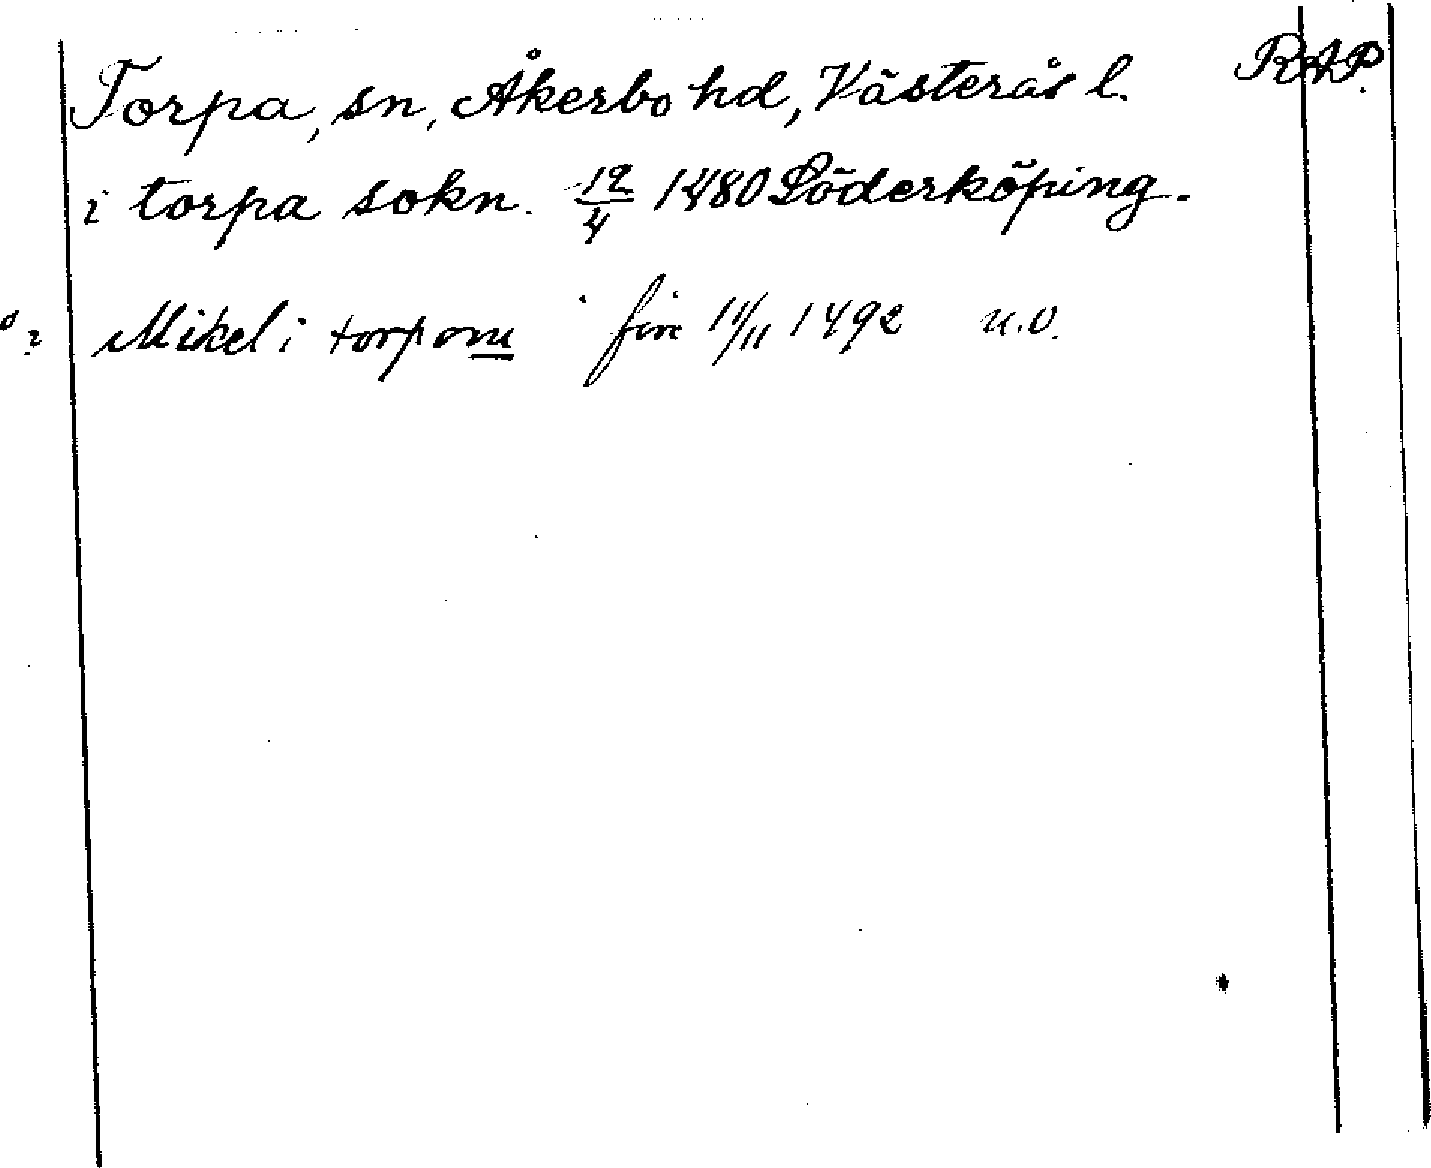 Torpa, sn, Åkerbo hd, Västerås l. RAP.
i torpa sokn. 12/4 1480 Söderköping.
? Mikel i torpom före 11/11 1492 u.o.